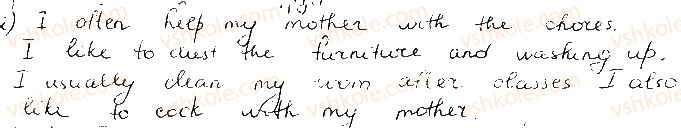 2) I often help my mother with the chores.
I like to dust the furniture and washing up.
I usually clean my room after classes I also
like to cook with my mother.